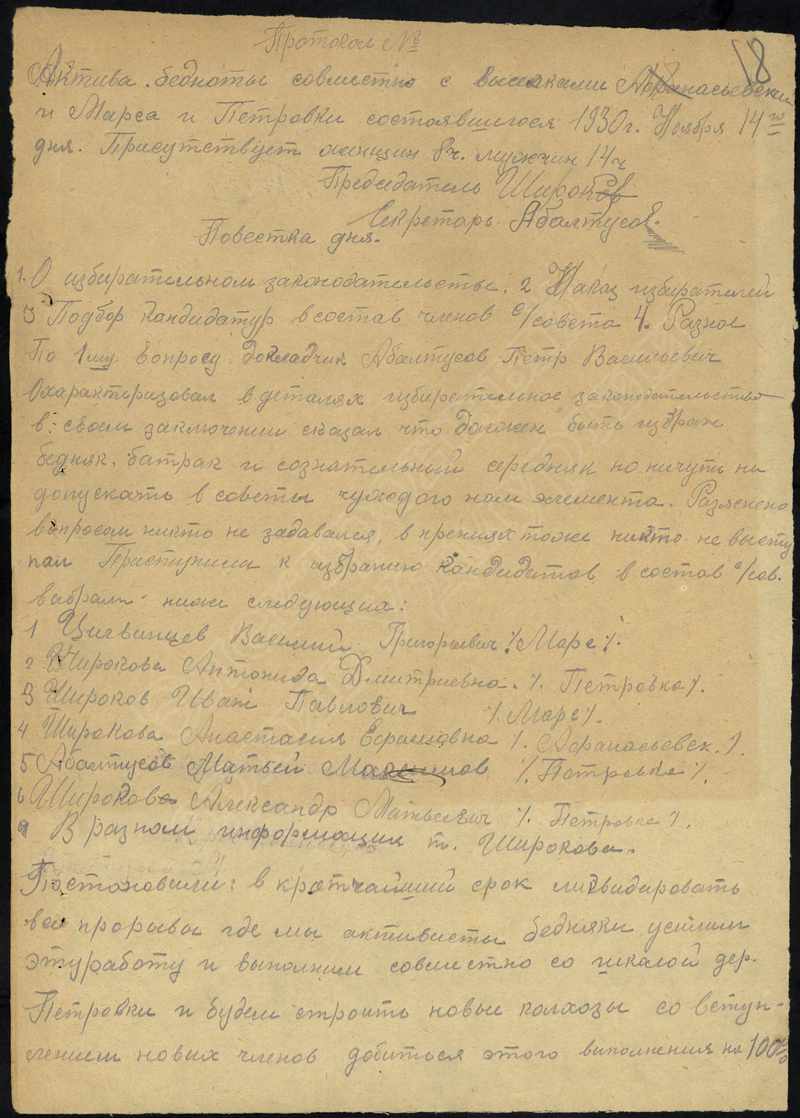 18
Протокол №
Актива бедноты совместно с Афанасьевски
и Марса и Петровки состоявшигося 1930 г. Ноября 14го
дня. Присутствует женщин 8ч. мужчин 14ч
Председатель Широков
Секретарь Абалтусов.
Повестка дня.
1. О избирательном законодательстве. 2 Наказ избирателей
3 Подбор кандидатур в состав членов с/совета 4. Разное
По 1му вопросу докладчик Абалтусов Петр Васильевич
Охарактеризовал в деталях избирательное законодательство
в своем заключении сказал что должен быть избран
бедняк, батрак и сознательный середняк но ничуть ни
допускать в советы чуждого нам элемента. Разяснено
вопросам никто не задавался, в прениях тоже никто не высту
пал Приступили к избранию кандидатов в состав с/сов.
выбрали ниже следующия:
1 Василий Григорьевич /. Марс /.
2 Широкова Антонида Дмитриевна. /. Петровка /.
3 Широков Иван Павлович /. Марс /.
4 Широкова Анастасия /. Афанасьевск. /.
5 Абалтусов Матвей /. Петровка /.
6 Широков Александр Матвеевич /. Петровка /.
В разном информации т. Широкова.
Постоновили: в кратчайший срок ликвидировать
все прорывы где мы активисты бедняки усилим
эту работу и выполним совместно со шкалой дер.
Петровки и будем строить новые колхозы со вступ-
лением новых членов добиться этого выполнения на 100%